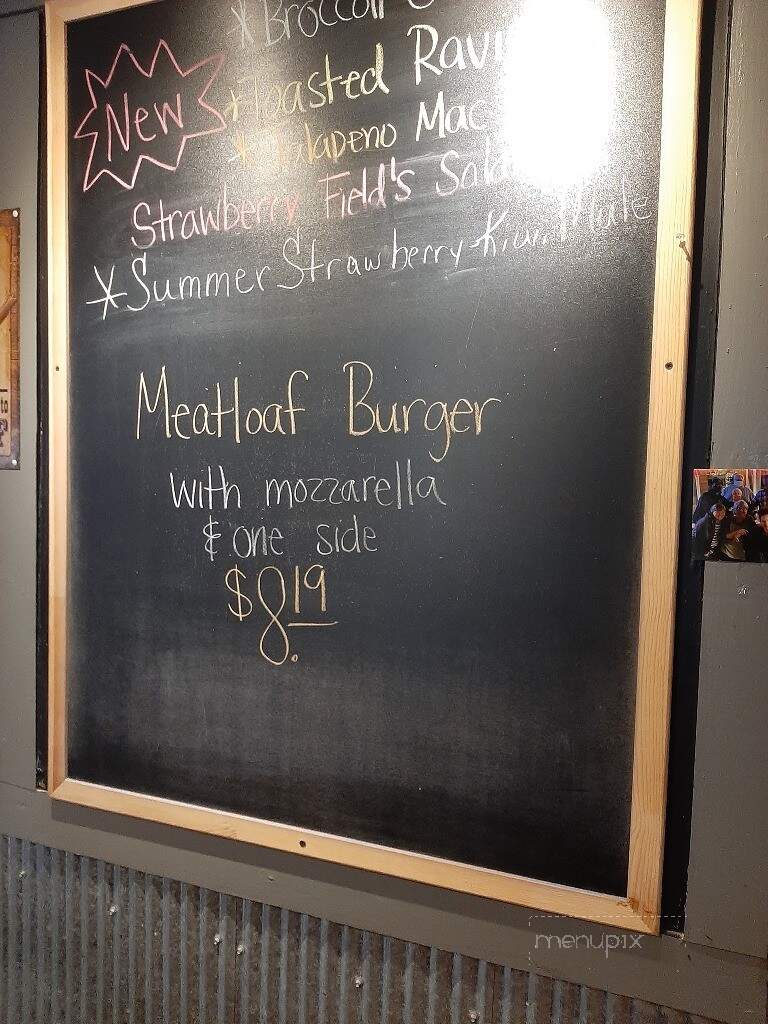 * Broccoli
New
* Toasted Ravi
* Jalapeno Mac
Strawberry Field's Sala
* Summer Strawberry Kiwi Mule
Meatloaf Burger
with mozzarella
& one side
$8.19
menupix